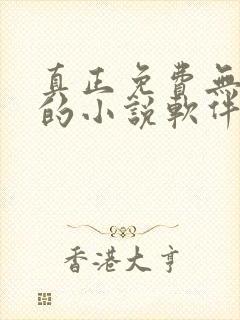 真正免費無
的小說軟件
香港大亨